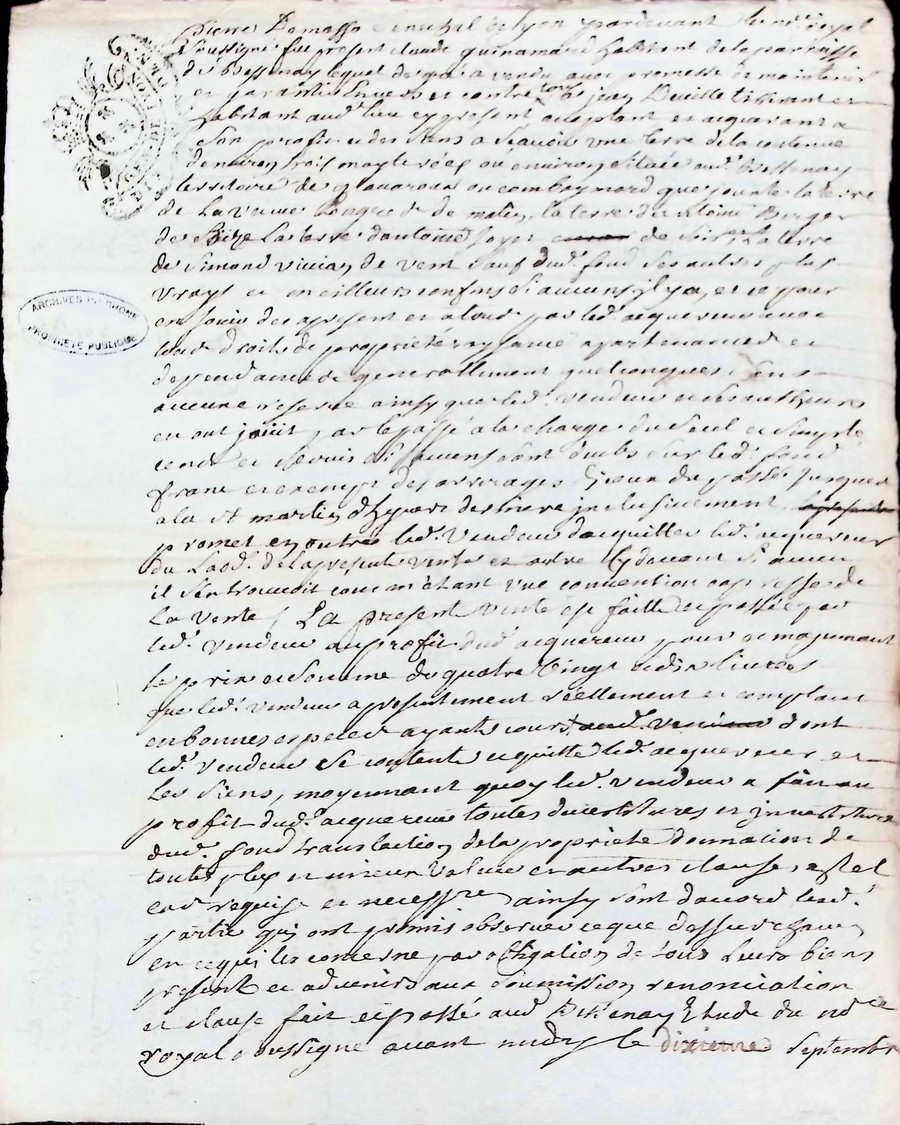 Pierre Demasso senechal de lyon pardevant le no.re royal
soussigné fut present claude guinamard habitant de la parroisse
de Bessenay lequel de gré a vendu avec promesse de maintenir
et garantir envers et contre tous a jean Deville tisserant et
habitant aud. lieu cy present acceptant et acquerant a
son profit et des siens a scavoir une terre de la contenue
d'environ trois mayterées ou environ située aud. Bessenay
territoire de ou combaymord que jouxte la terre
de la veuve de matin, la terre d'antoine Berger
de Bize la terre d'antoine de soir, la terre
de Simond Vivian de vent sauf dud. fond ses autres plus
vrays et meilleurs confins si aucuns il y a, et ce pour
en jouir des apresent et a par led. acquereur avec
tous droits de propriété apartenances et
dependances generallement quelconques sans
aucune reserve ainsy que led. vendeur et ses autheurs
en ont jouit par le passé a la charge du seul et simple
cens et servis si aucuns sont deubs sur led. fond
franc et exempt des arrerages d'iceux du passé jusques
a la St martin d'hyvert derniere inclusivement
promet en outre led. vendeur d'acquitter led. acquereur
du laod. de la presente vente et autre cydevant si aucun
il s'en trouvoit comm'etant une convention expresse de
la vente / La present vente est faitte et passée par
led. vendeur au profit dud. acquereur pour et moyennant
le prix et somme de quatre vingt et dix livres
que led. vendeur a presentement réellement et comptant
en bonnes especes ayants cours dont
led. vendeur se contente et quitte led. acquereur et
les siens, moyennant quoy led. vendeur a fait au
profit dud. acquereur toutes devestitures et investitures
dud. fond translaction de la propriété donnation de
toutes plus et mieux value et autres clauses a
requise et necess.re ainsy sont d'accord lesd.
partie qui ont promis observer ce que dessus chacun
en ce qui les concerne par obligation de tous leurs biens
present et advenirs aux soumission renonciation
et clause fait et passé aud. Bessenay Etude du no.re
royal soussigné avant midy le dixieme septembre
ARCHIVES DU RHONE
PROPRIÉTÉ PUBLIQUE